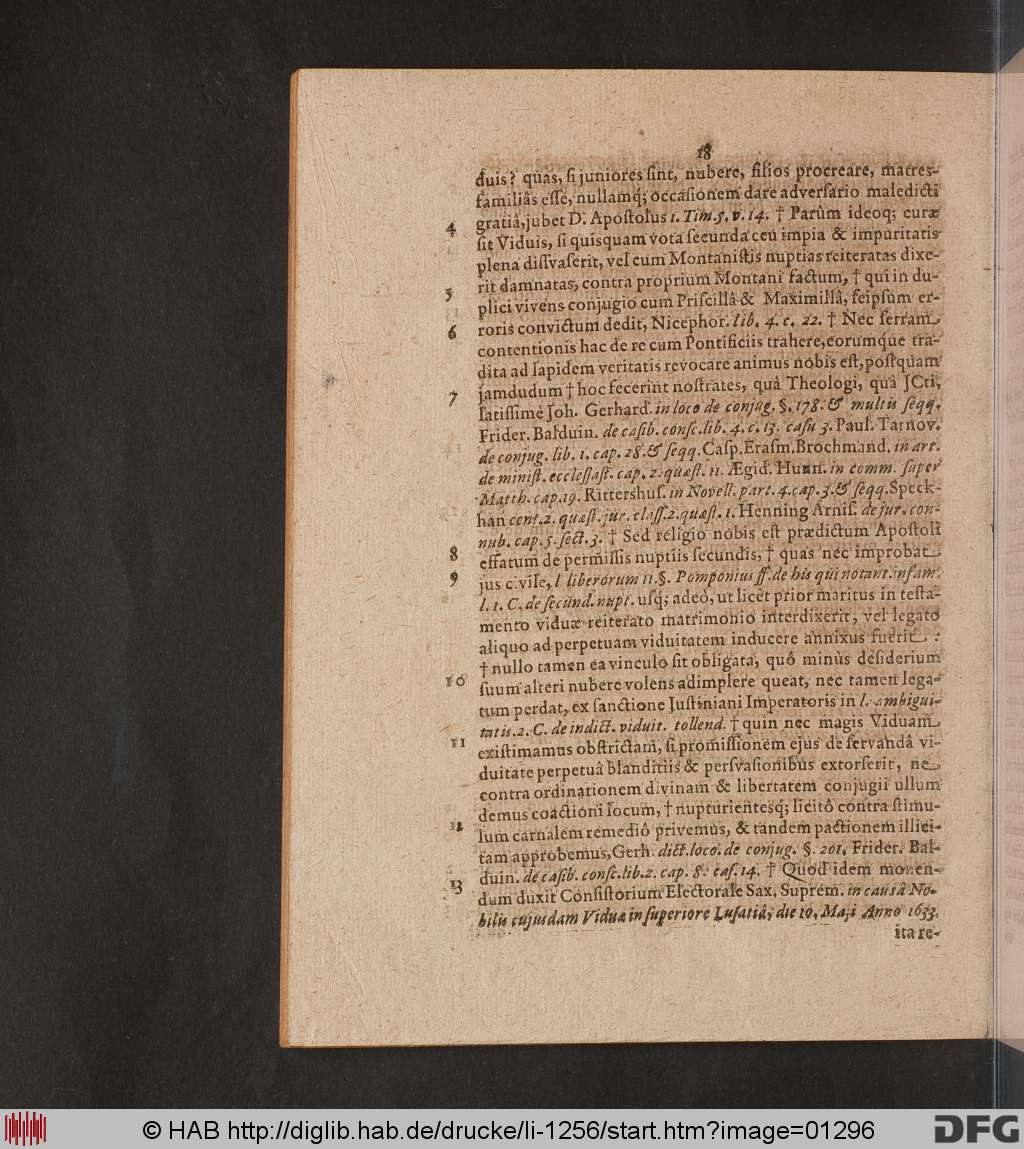 18
duis? quâs, si juniores sint, nubere, filios procreare, matres-
familiâs esse, nullamq; occasionem dare adversario maledicti
4 gratiâ, jubet D. Apostolus 1. Tim. 5. v. 14. † Parùm ideoq; curæ
sit Viduis, si quisquam vota secunda ceu impia & impuritatis
plena dissvaserit, vel cum Montanistis nuptias reiteratas dixe-
5 rit damnatas, contra proprium Montani factum, † qui in du-
plici vivens conjugio cum Priscillâ & Maximillâ, seipsum er-
6 roris convictum dedit, Nicephor. lib. 4. c. 22. † Nec serram
contentionis hac de re cum Pontificiis trahere, eorumq́ue tra-
dita ad lapidem veritatis revocare animus nobis est, postquam
7 jamdudum † hoc fecerint nostrates, quâ Theologi, quâ JCti,
latissimè Joh. Gerhard. in loco de conjug. §. 178. & multis seqq.
Frider. Balduin. de casib. consc. lib. 4. c. 13. casu 3. Paul. Tarnov.
de conjug. lib. 1. cap. 28. & seqq. Casp. Erasm. Brochmand. in art.
de minist. ecclesiast. cap. 2. quæst. 11. Ægid. Hunn. in comm. super
Matth. cap. 19. Rittershus. in Novell. part. 4. cap. 3. & seqq. Speck-
han cent. 2. quæst. jur. class. 2. quæst. 1. Henning Arnis. de jur. con-
8 nub. cap. 5. sect. 3. † Sed religio nobis est prædictum Apostoli
effatum de permissis nuptiis secundis, † quas nec improbat
9 jus civile, l liberorum 11. §. Pomponius ff. de his qui notant. infam.
l. 1. C. de secund. nupt. usq; adeò, ut licèt prior maritus in testa-
mento viduæ reiterato matrimonio interdixerit, vel legato
aliquo ad perpetuam viduitatem inducere annixus fuerit. :
10 † nullo tamen ea vinculo sit obligata, quô minùs desiderium
suum alteri nubere volens adimplere queat, nec tamen lega-
tum perdat, ex sanctione Justiniani Imperatoris in l. ambigui-
11 tatis. 2. C. de indict. viduit. tollend. † quin nec magis Viduam
existimamus obstrictam, si promissionem ejus de servandâ vi-
duitate perpetuâ blanditiis & persvasionibus extorserit, ne
contra ordinationem divinam & libertatem conjugii ullum
12 demus coactioni locum, † nupturientesq́; licitô contra stimu-
lum carnalem remediô privemus, & tandem pactionem illici-
tam approbemus, Gerh. dict. loco. de conjug. §. 201. Frider. Bal-
13 duin. de casib. consc. lib. 2. cap. 8. cas. 14. † Quod idem monen-
dum duxit Consistorium Electorale Sax. Suprem. in causâ No-
bilis cujusdam Viduæ in superiore Lusatiâ, die 10. Maji Anno 1633.
ita re-
© HAB http://diglib.hab.de/drucke/li-1256/start.htm?image=01296
DFG